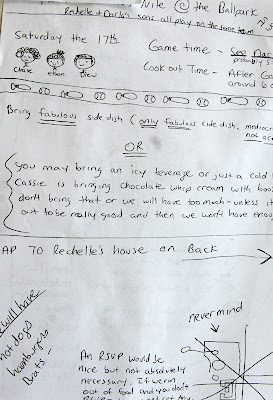 Nite @ the Ballpark
Rachelle + Darla's sons all play on the same team
Saturday the 17th
Game time - See Dar
probably 5
chase ethan Drew
Cook out Time - After Ga
around 6 o
Bring fabulous side dish (only fabulous side dish. mediocre
not acc
OR
you may bring an icy beverage or just a cold
Cassie is bringing chocolate whip cream with booz
don't bring that or we will have too much - unless it
out to be really good and then we won't have enoug
AP TO Rechelle's house on Back
will have
hot dogs
hamburgers
Brats -
nevermind
An RSVP would be
nice but not absolutely
necessary. If we run
out of food and you don't